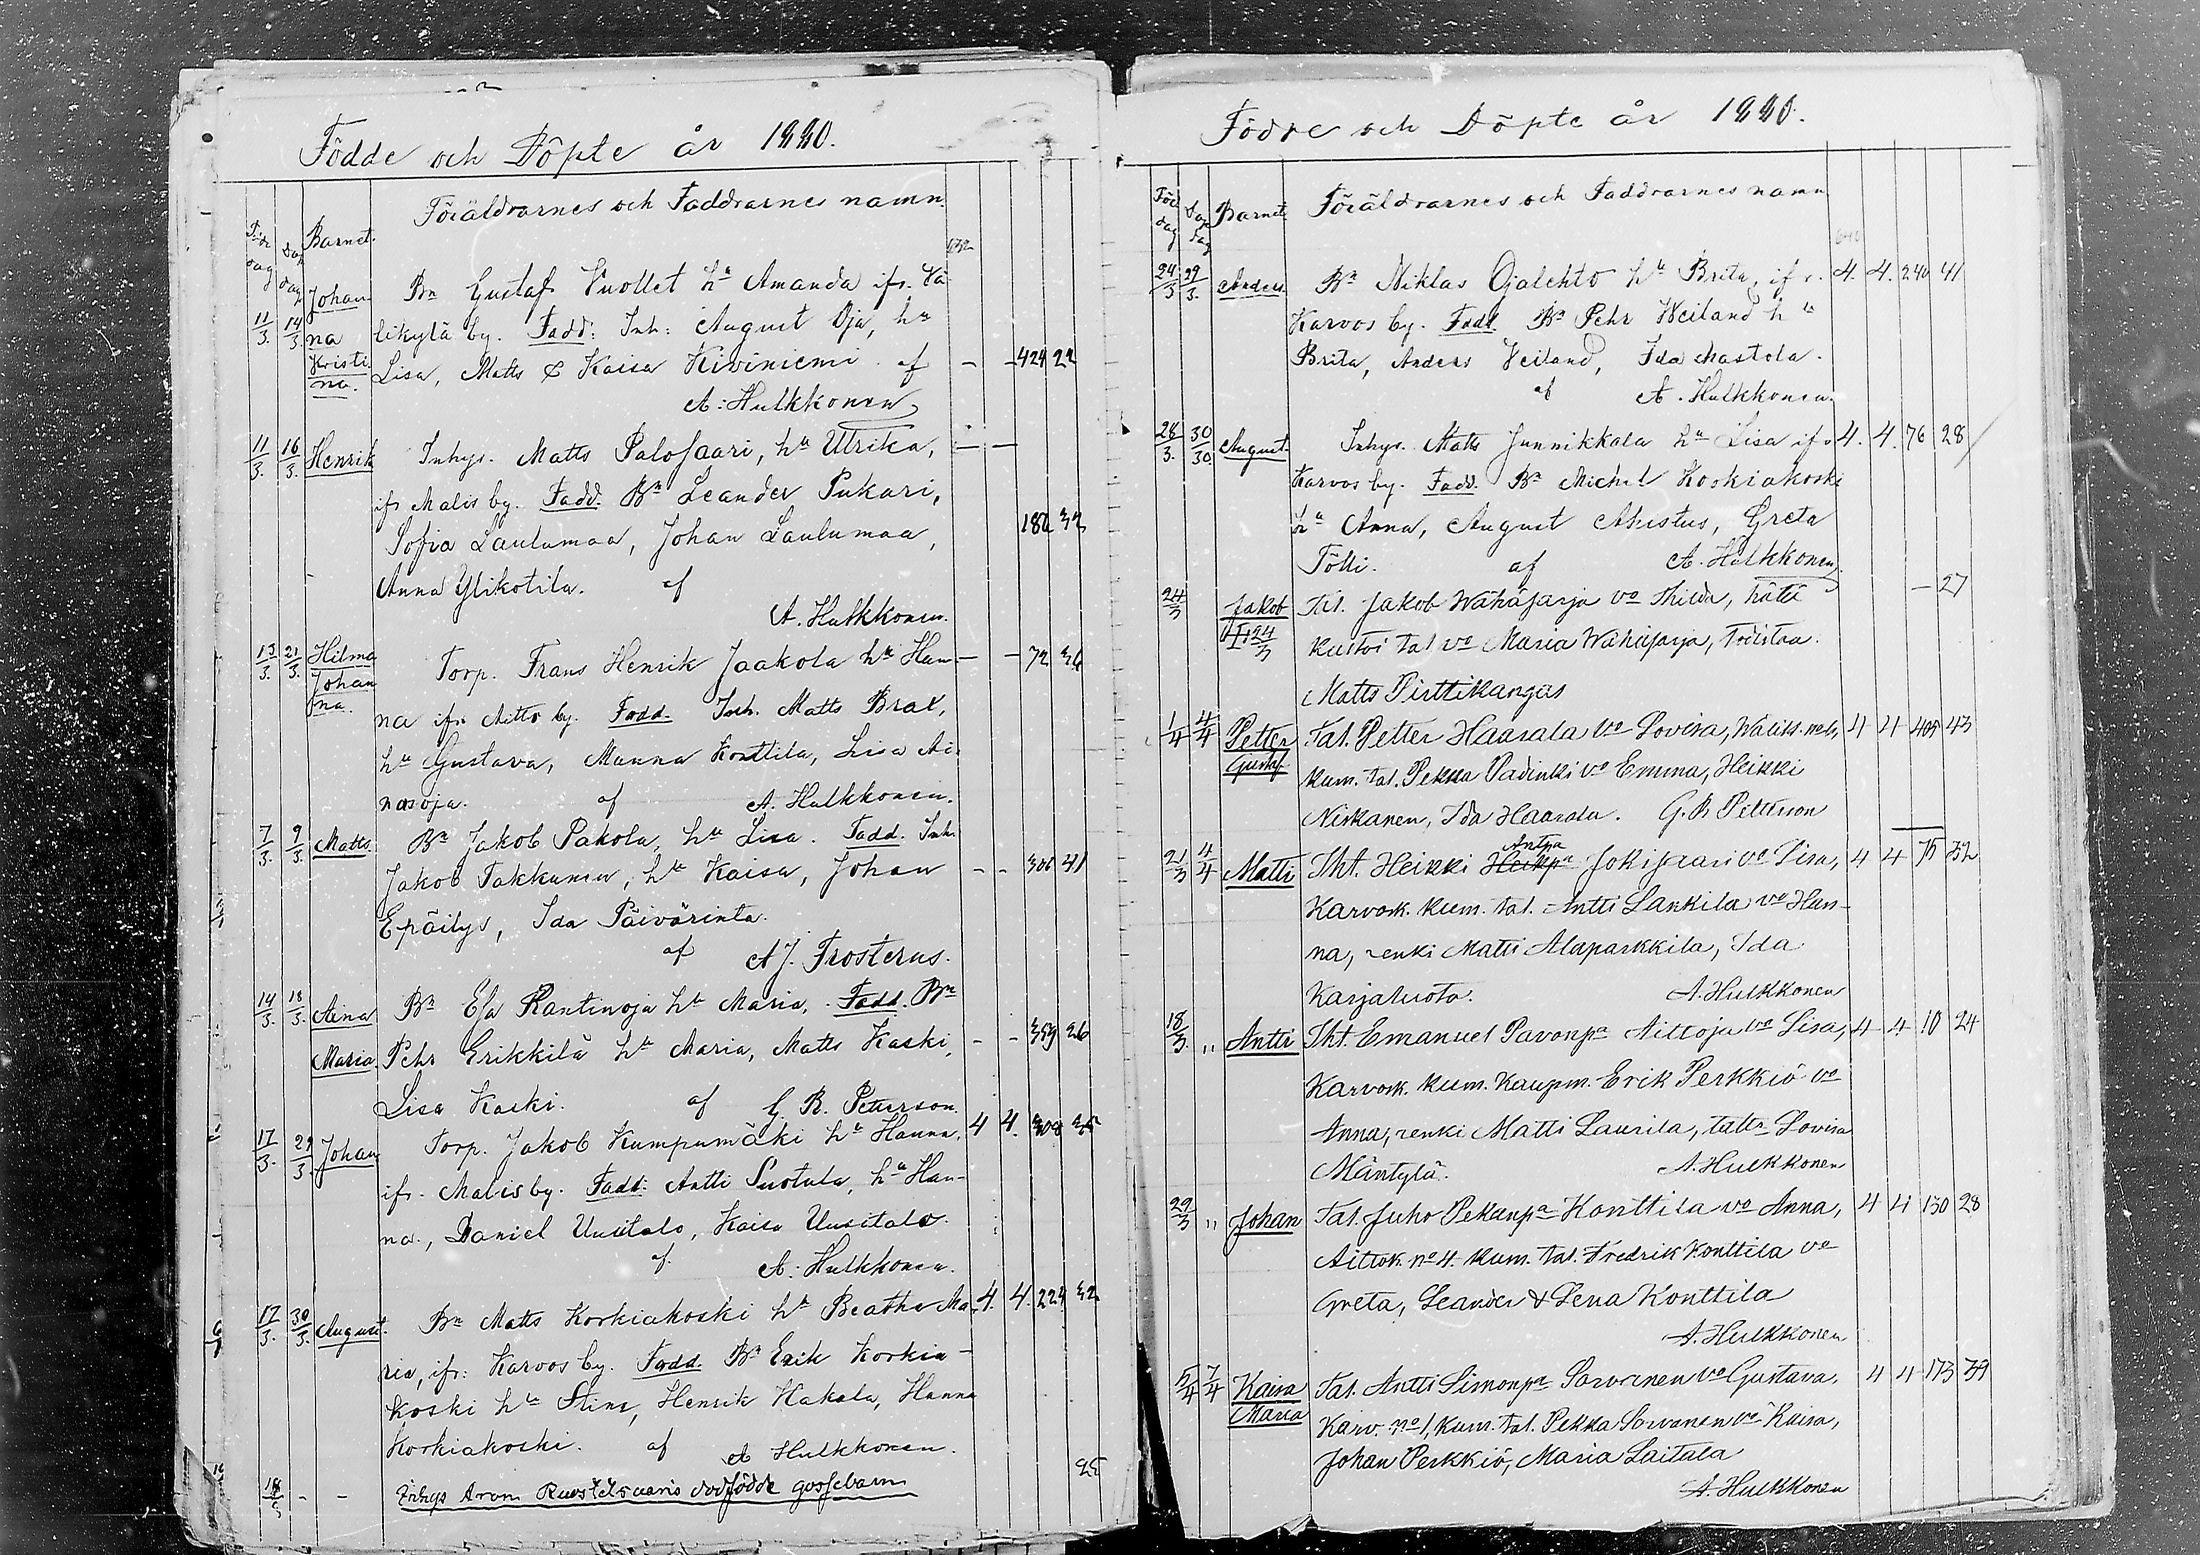 Födde och Döpte år 1880.
Föd. dag Döp dag Barnet. Föräldrarnes och Faddrarnes namn.
11/3 14/3 Johanna Kristina. Bn Gustaf Vuollet hu Amanda ifr. Vä-
likylä by. Fadd: Inh: August Oja, hu
Lisa, Matts & Kaisa Kiviniemi af — — 424 22
A: Hulkkonen
11/3. 16/3. Henrik Inhys. Matts Palosaari, hu Ulrika, — —
ifr Malis by. Fadd. Bn Leander Pukari,
Sofia Laulumaa, Johan Laulumaa, 182 32
Anna Ylikotila. af
A. Hulkkonen.
13/3. 21/3. Hilma Johanna. Torp. Frans Henrik Jaakola hu Han- — — 72 36
na ifr. Aitto by. Fadd. Inh. Matts Brax,
hu Gustava, Manna Konttila, Lisa Ai-
nasoja. af A. Hulkkonen.
7/3. 9/3. Matts Bn Jakob Pakola, hu Lisa. Fadd. Inh.
Jakob Takkunen, hu Kaisa, Johan — — 306 41
Epäilys, Ida Päivärinta.
af A J. Frosterus.
14/3. 18/3. Aina Bn Esa Rantinoja hu Maria, Fadd. Bn
Maria. Pehr Erikkilä hu Maria, Matts Kaski, — — 359 26
Lisa Kaski. af G. R. Petterson.
17/3. 29/3. Johan Torp. Jakob Kumpumäki hu Hanna, 4 4. 308 35
ifr. Malis by. Fadd: Antti Suotula, hu Han-
na., Daniel Uusitalo, Kaisa Uusitalo.
af. A: Hulkkonen.
17/3. 30/3. August. Bn Matts Korkiakoski hu Beatha Ma- 4. 4. 224 32
ria, ifr: Karvos by. Fadd. Bn Erik Korkia-
koski hu Stina, Henrik Hakala, Hanna
Korkiakoski. af A Hulkkonen.
25
18/3 — — Inhys Aron dödfödde gossebarn
Födde och Döpte år 1880.
Föd dag Döp dag Barnet Föräldrarnes och Faddrarnes namn
24/3 29/3. Anders. Bn Niklas Ojalehto hu Brita, ifr. 4. 4. 240 41
Karvos by. Fadd. Bn Pehr Weiland hu
Brita, Anders Veiland, Ida Mastola.
af A. Hulkkonen.
28/3. 30/30. August. Inhys. Matts Junnikkala hu Lisa ifr 4. 4. 76 28
Karvos by. Fadd. Bn Michel Koskiakoski
hu Anna, August Ahistus, Greta
Tölli. af A. Hulkkonen.
24/3 Jakob Til. Jakob Wähäjarja vo Thilda, hätä — 27
24/3 kastoi tal vo Maria Wähäjarja, todistaa
Matts Pirttikangas
1/4 4/4 Petter Gustaf. Tal. Petter Haarala vo Lovisa, 4 4 405 43
kum. tal. Pekka Padinki vo Emma, Heikki
Niskanen, Ida Haarala. G. R Petterson
Antpa
21/3 4/4 Matti Tht. Heikki Heikpa Jokisaari vo Lisa, 4 4 75 32
Karvosk. kum. tal. Antti Lankila vo Han-
na, renki Matti Alaparkkila, Ida
Karjaluoto. A. Hulkkonen
18/3. „ Antti Tht. Emanuel Pavonpa Aittoja vo Lisa, 4 4 10 24
Karvosk. kum. kaupm. Erik Perkkiö vo
Anna, renki Matti Laurila, talltr Lovisa
Mäntylä. A. Hulkkonen
29/3 „ Johan Tal. Juho Pekanpa Konttila vo Anna, 4 4 130 28
Aittok. no 4. kum. tal. Fredrik Konttila vo
Greta, Leander & Lena Konttila
A. Hulkkonen
5/4 7/4 Kaisa Maria Tal. Antti Simonpa Sorvonen vo Gustava, 4 4 173 39
Karv. no 1, kum. tal. Pekka Sorvanen vo Kaisa,
Johan Perkkiö, Maria Laitala
A. Hulkkonen